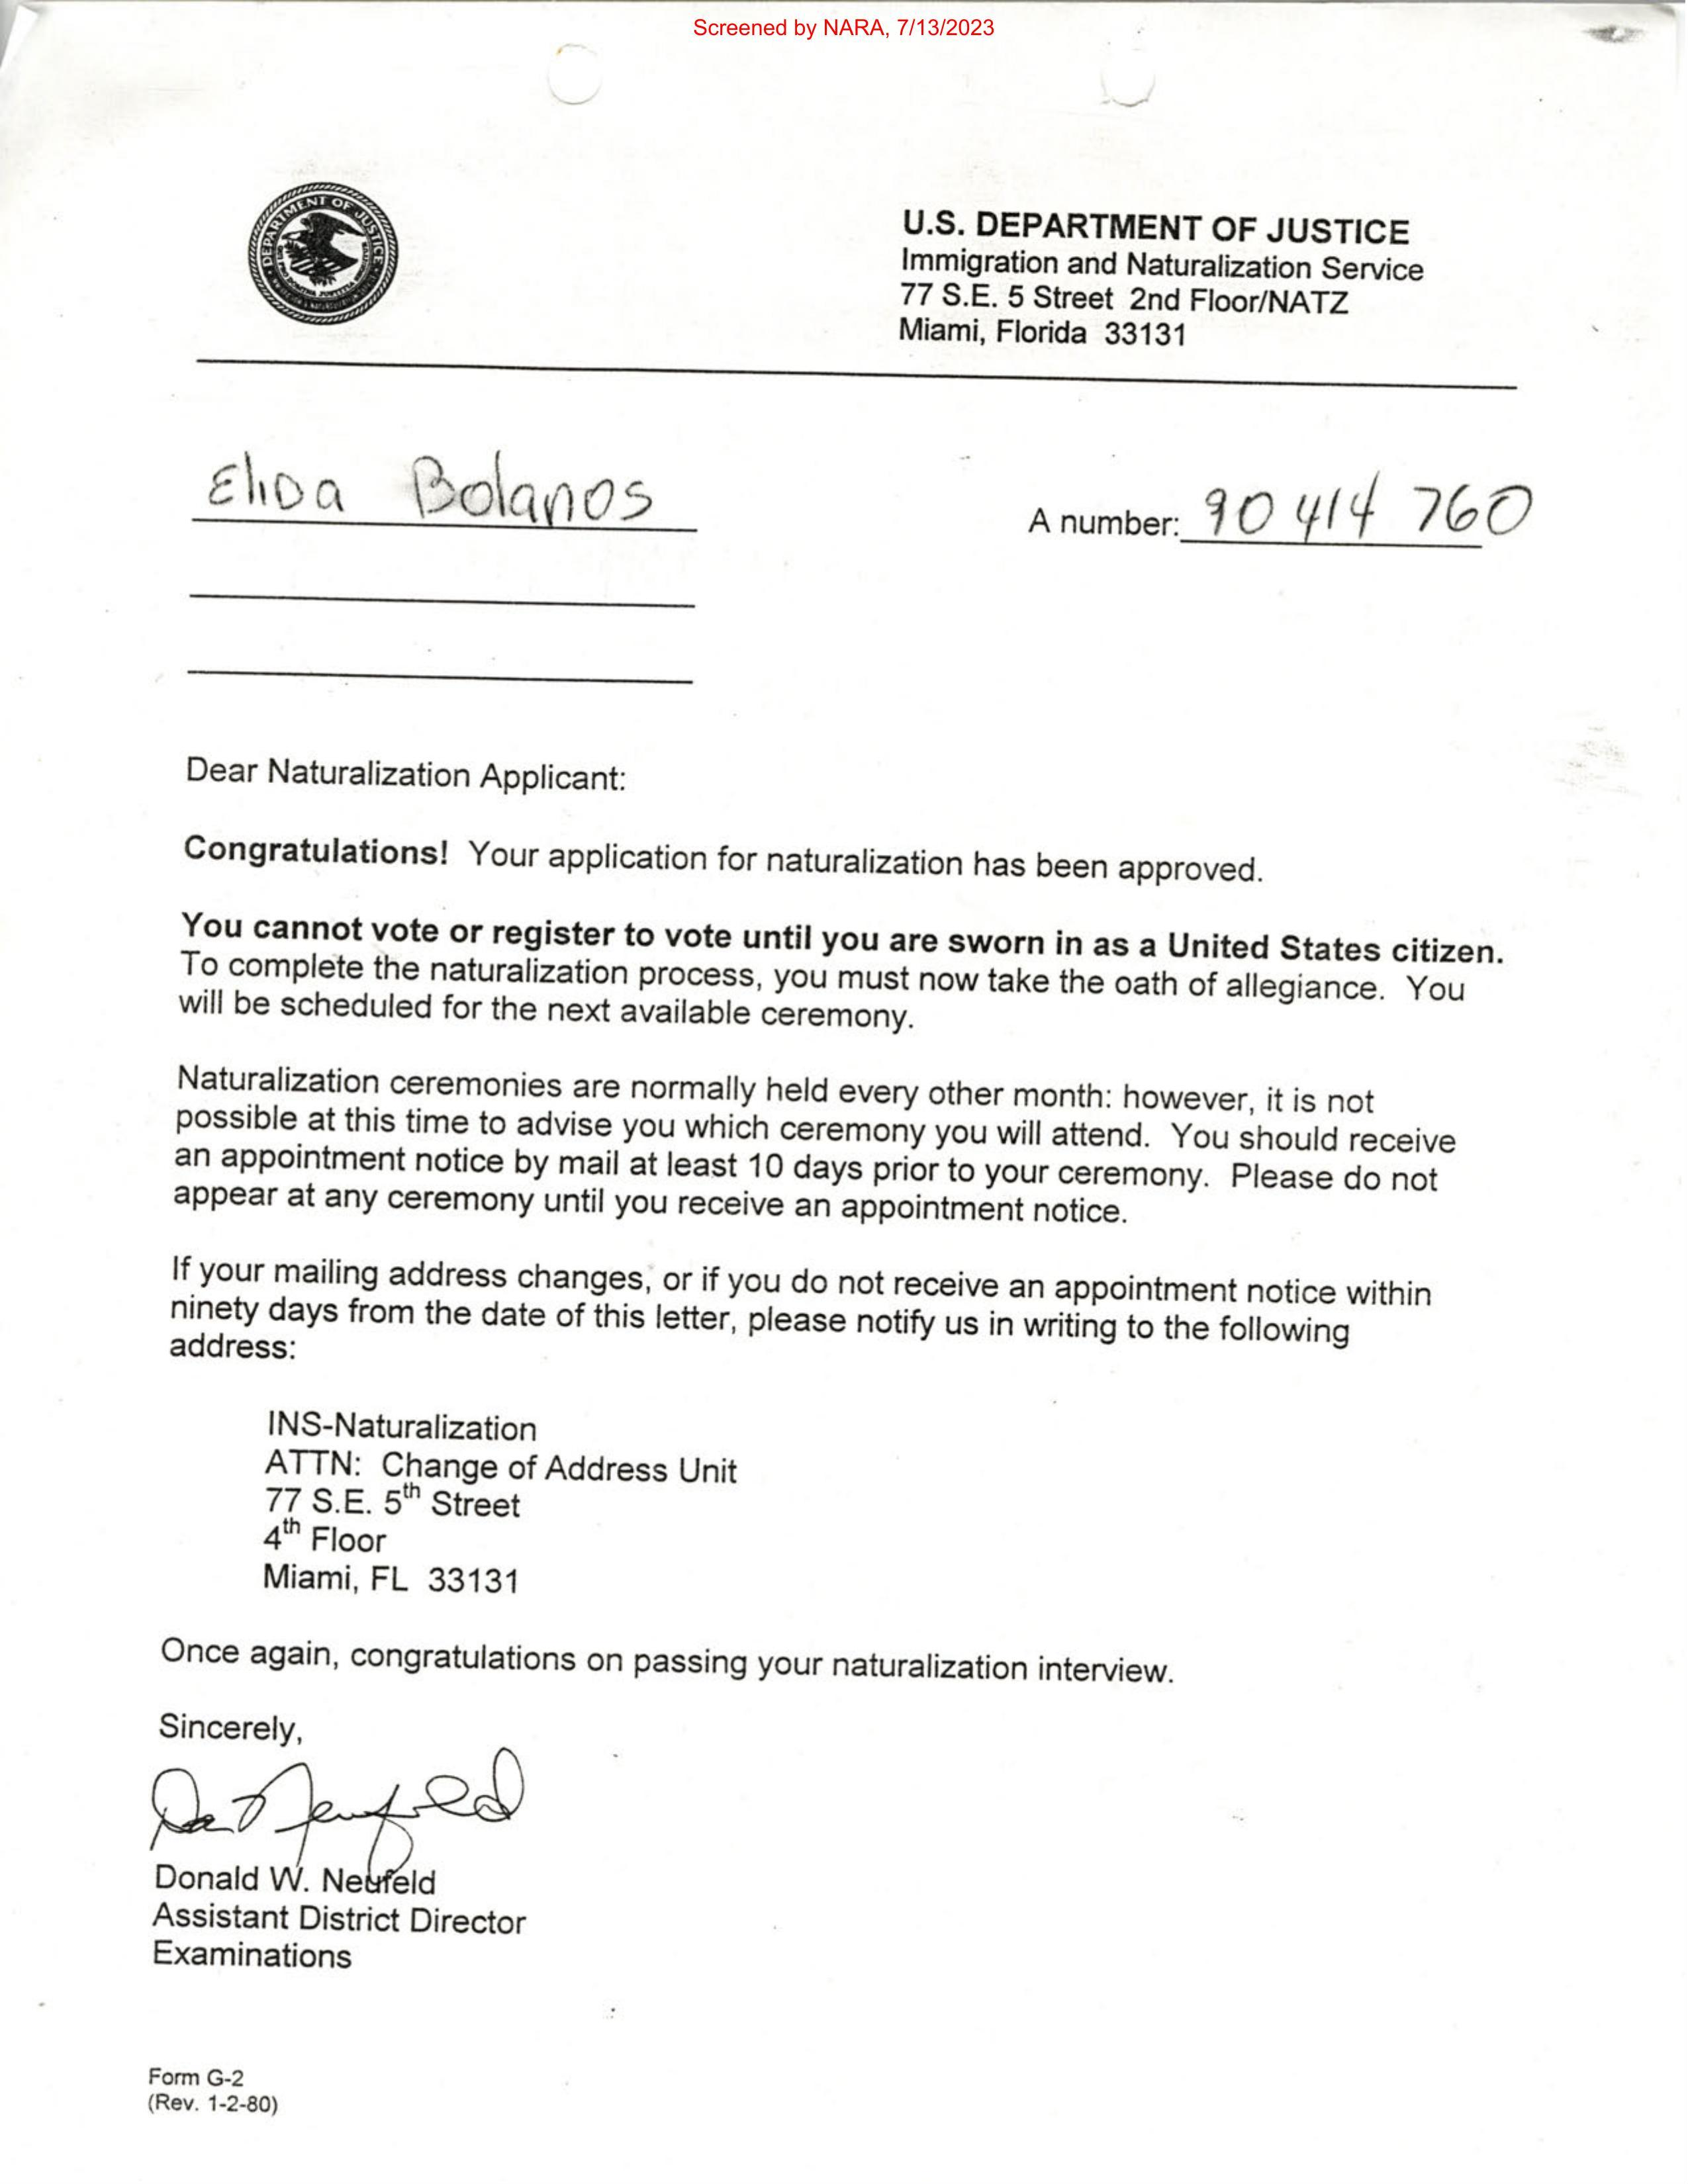 Screened by NARA, 7/13/2023
DEPARTMENT OF JUSTICE
U.S. DEPARTMENT OF JUSTICE
Immigration and Naturalization Service
77 S.E. 5 Street 2nd Floor/NATZ
Miami, Florida 33131
Elida Bolanos
A number: 90 414 760
Dear Naturalization Applicant:
Congratulations! Your application for naturalization has been approved.
You cannot vote or register to vote until you are sworn in as a United States citizen.
To complete the naturalization process, you must now take the oath of allegiance. You
will be scheduled for the next available ceremony.
Naturalization ceremonies are normally held every other month: however, it is not
possible at this time to advise you which ceremony you will attend. You should receive
an appointment notice by mail at least 10 days prior to your ceremony. Please do not
appear at any ceremony until you receive an appointment notice.
If your mailing address changes, or if you do not receive an appointment notice within
ninety days from the date of this letter, please notify us in writing to the following
address:
INS-Naturalization
ATTN: Change of Address Unit
77 S.E. 5th Street
4th Floor
Miami, FL 33131
Once again, congratulations on passing your naturalization interview.
Sincerely,
Donald W. Neufeld
Assistant District Director
Examinations
Form G-2
(Rev. 1-2-80)